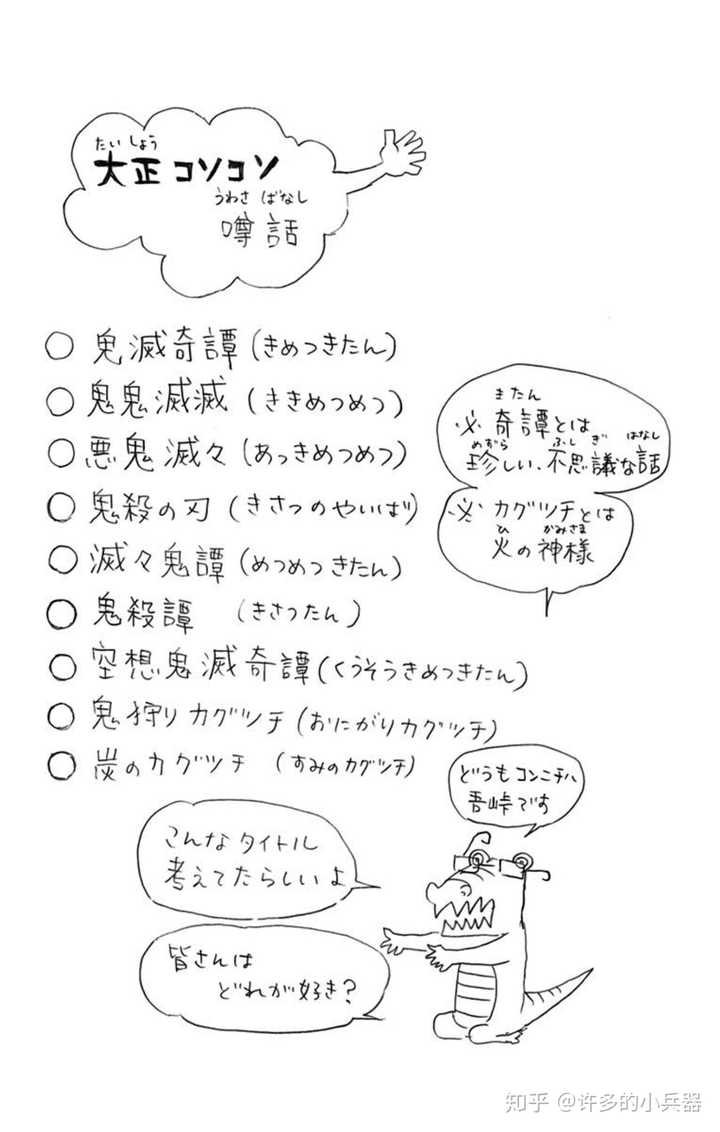 たいしょう
大正コソコソ
うわさ ばなし
噂話
○ 鬼滅奇譚(きめつきたん)
○ 鬼鬼滅滅 (ききめつめつ)
○ 悪鬼滅々 (あっきめつめつ)
○ 鬼殺の刃 (きさつのやいば)
○ 滅々鬼譚 (めつめつきたん)
○ 鬼殺譚 (きさつたん)
○ 空想鬼滅奇譚(くうそうきめつきたん)
○ 鬼狩りカグツチ(おにがりカグツチ)
○ 炭のカグツチ (すみのカグツチ)
きたん
※ 奇譚とは
めずら ふしぎ はなし
珍しい、不思議な話
※ カグツチとは
ひ かみさま
火の神様
どうもコンニチハ
吾峠です
こんなタイトル
考えてたらしいよ
皆さんは
どれが好き?
知乎 @许多的小兵器